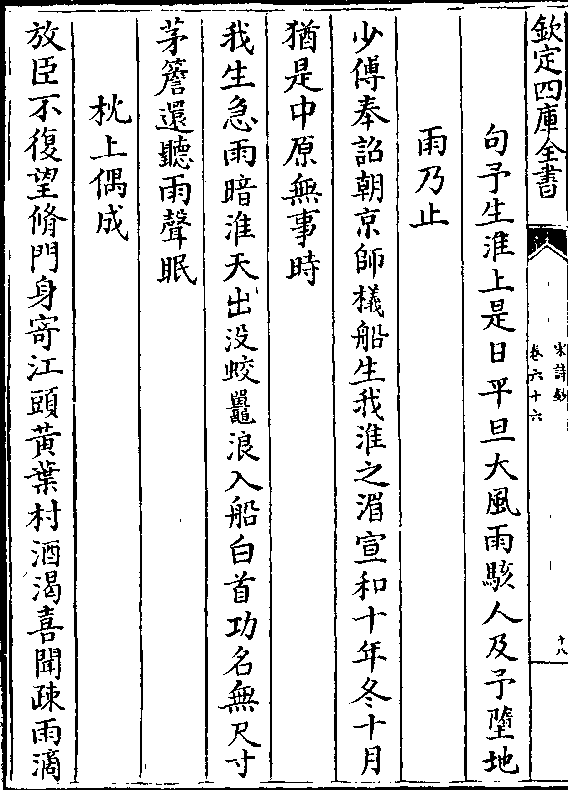 欽定四庫全書
宋詩鈔
卷六十六
十八
句予生淮上是日平旦大風雨駭人及予墮地
雨乃止
少傅奉詔朝京師檥船生我淮之湄宣和十年冬十月
猶是中原無事時
我生急雨暗淮天出没蛟鼉浪入船白首功名無尺寸
茅簷還聽雨聲眠
枕上偶成
放臣不復望脩門身寄江頭黄葉村酒渴喜聞疎雨滴